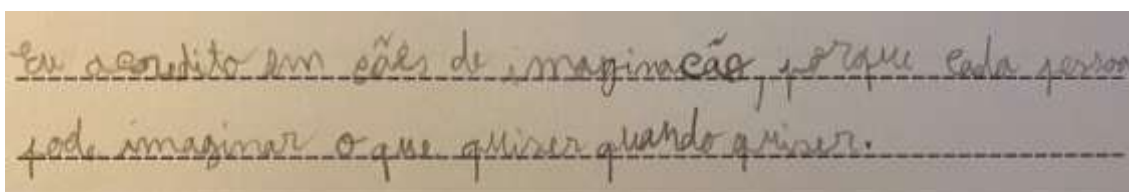 Eu acredito em cães de imaginacão, porque cada pesson
pode imaginar o que quiser quando quiser.